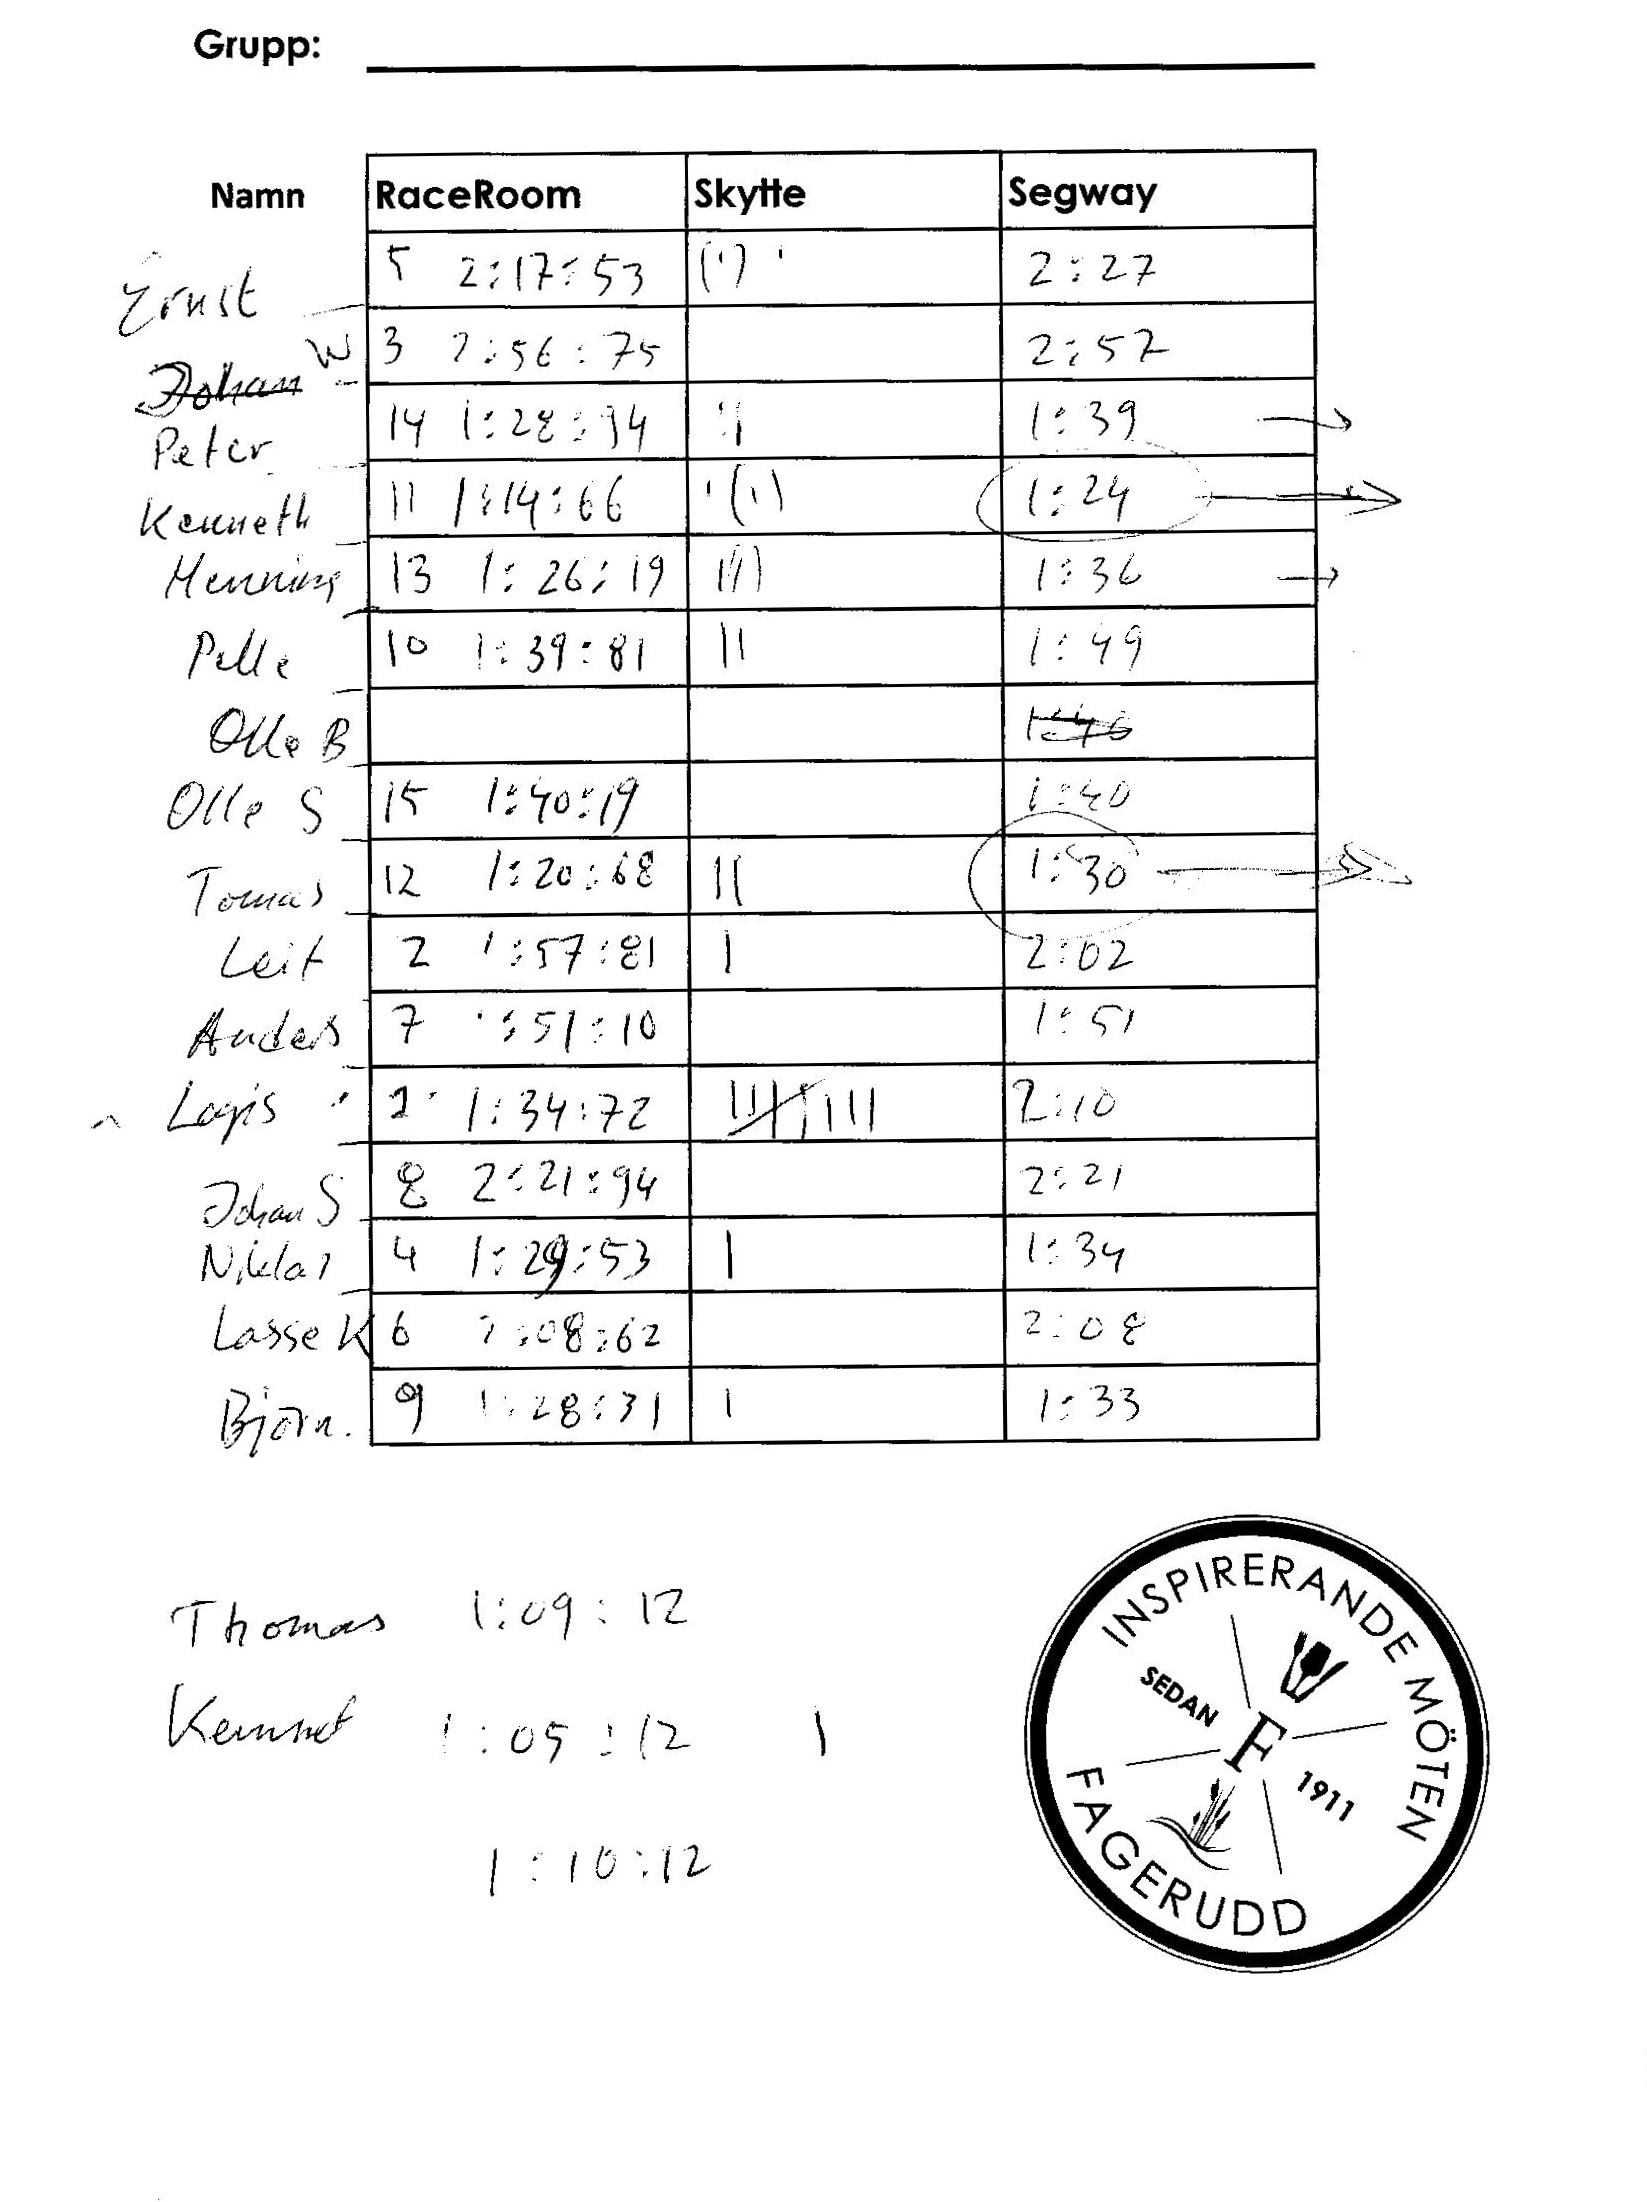 Grupp:
Namn RaceRoom Skytte Segway
Ernst 5 2:17:53 2:27
Johan W 3 2:56:75 2:57
Peter 14 1:28:94 1:39
Kenneth 11 1:14:66 1:24
Henning 13 1:26:19 1:36
Pelle 10 1:39:81 || 1:49
Olle B
Olle S 15 1:40:19 1:40
Tomas 12 1:20:68 || 1:30
Leif 2 1:57:81 | 2:02
Anders 7 1:51:10 1:51
1:34:72 2:10
Johan S 8 2:21:94 2:21
Niklas 4 1:29:53 | 1:34
Lasse K 6 2:08:62 2:08
Björn. 9 1:28:31 | 1:33
Thomas 1:09:12
Kennet 1:05:12 |
1:10:12
INSPIRERANDE MÖTEN
SEDAN F 1911
FAGERUDD